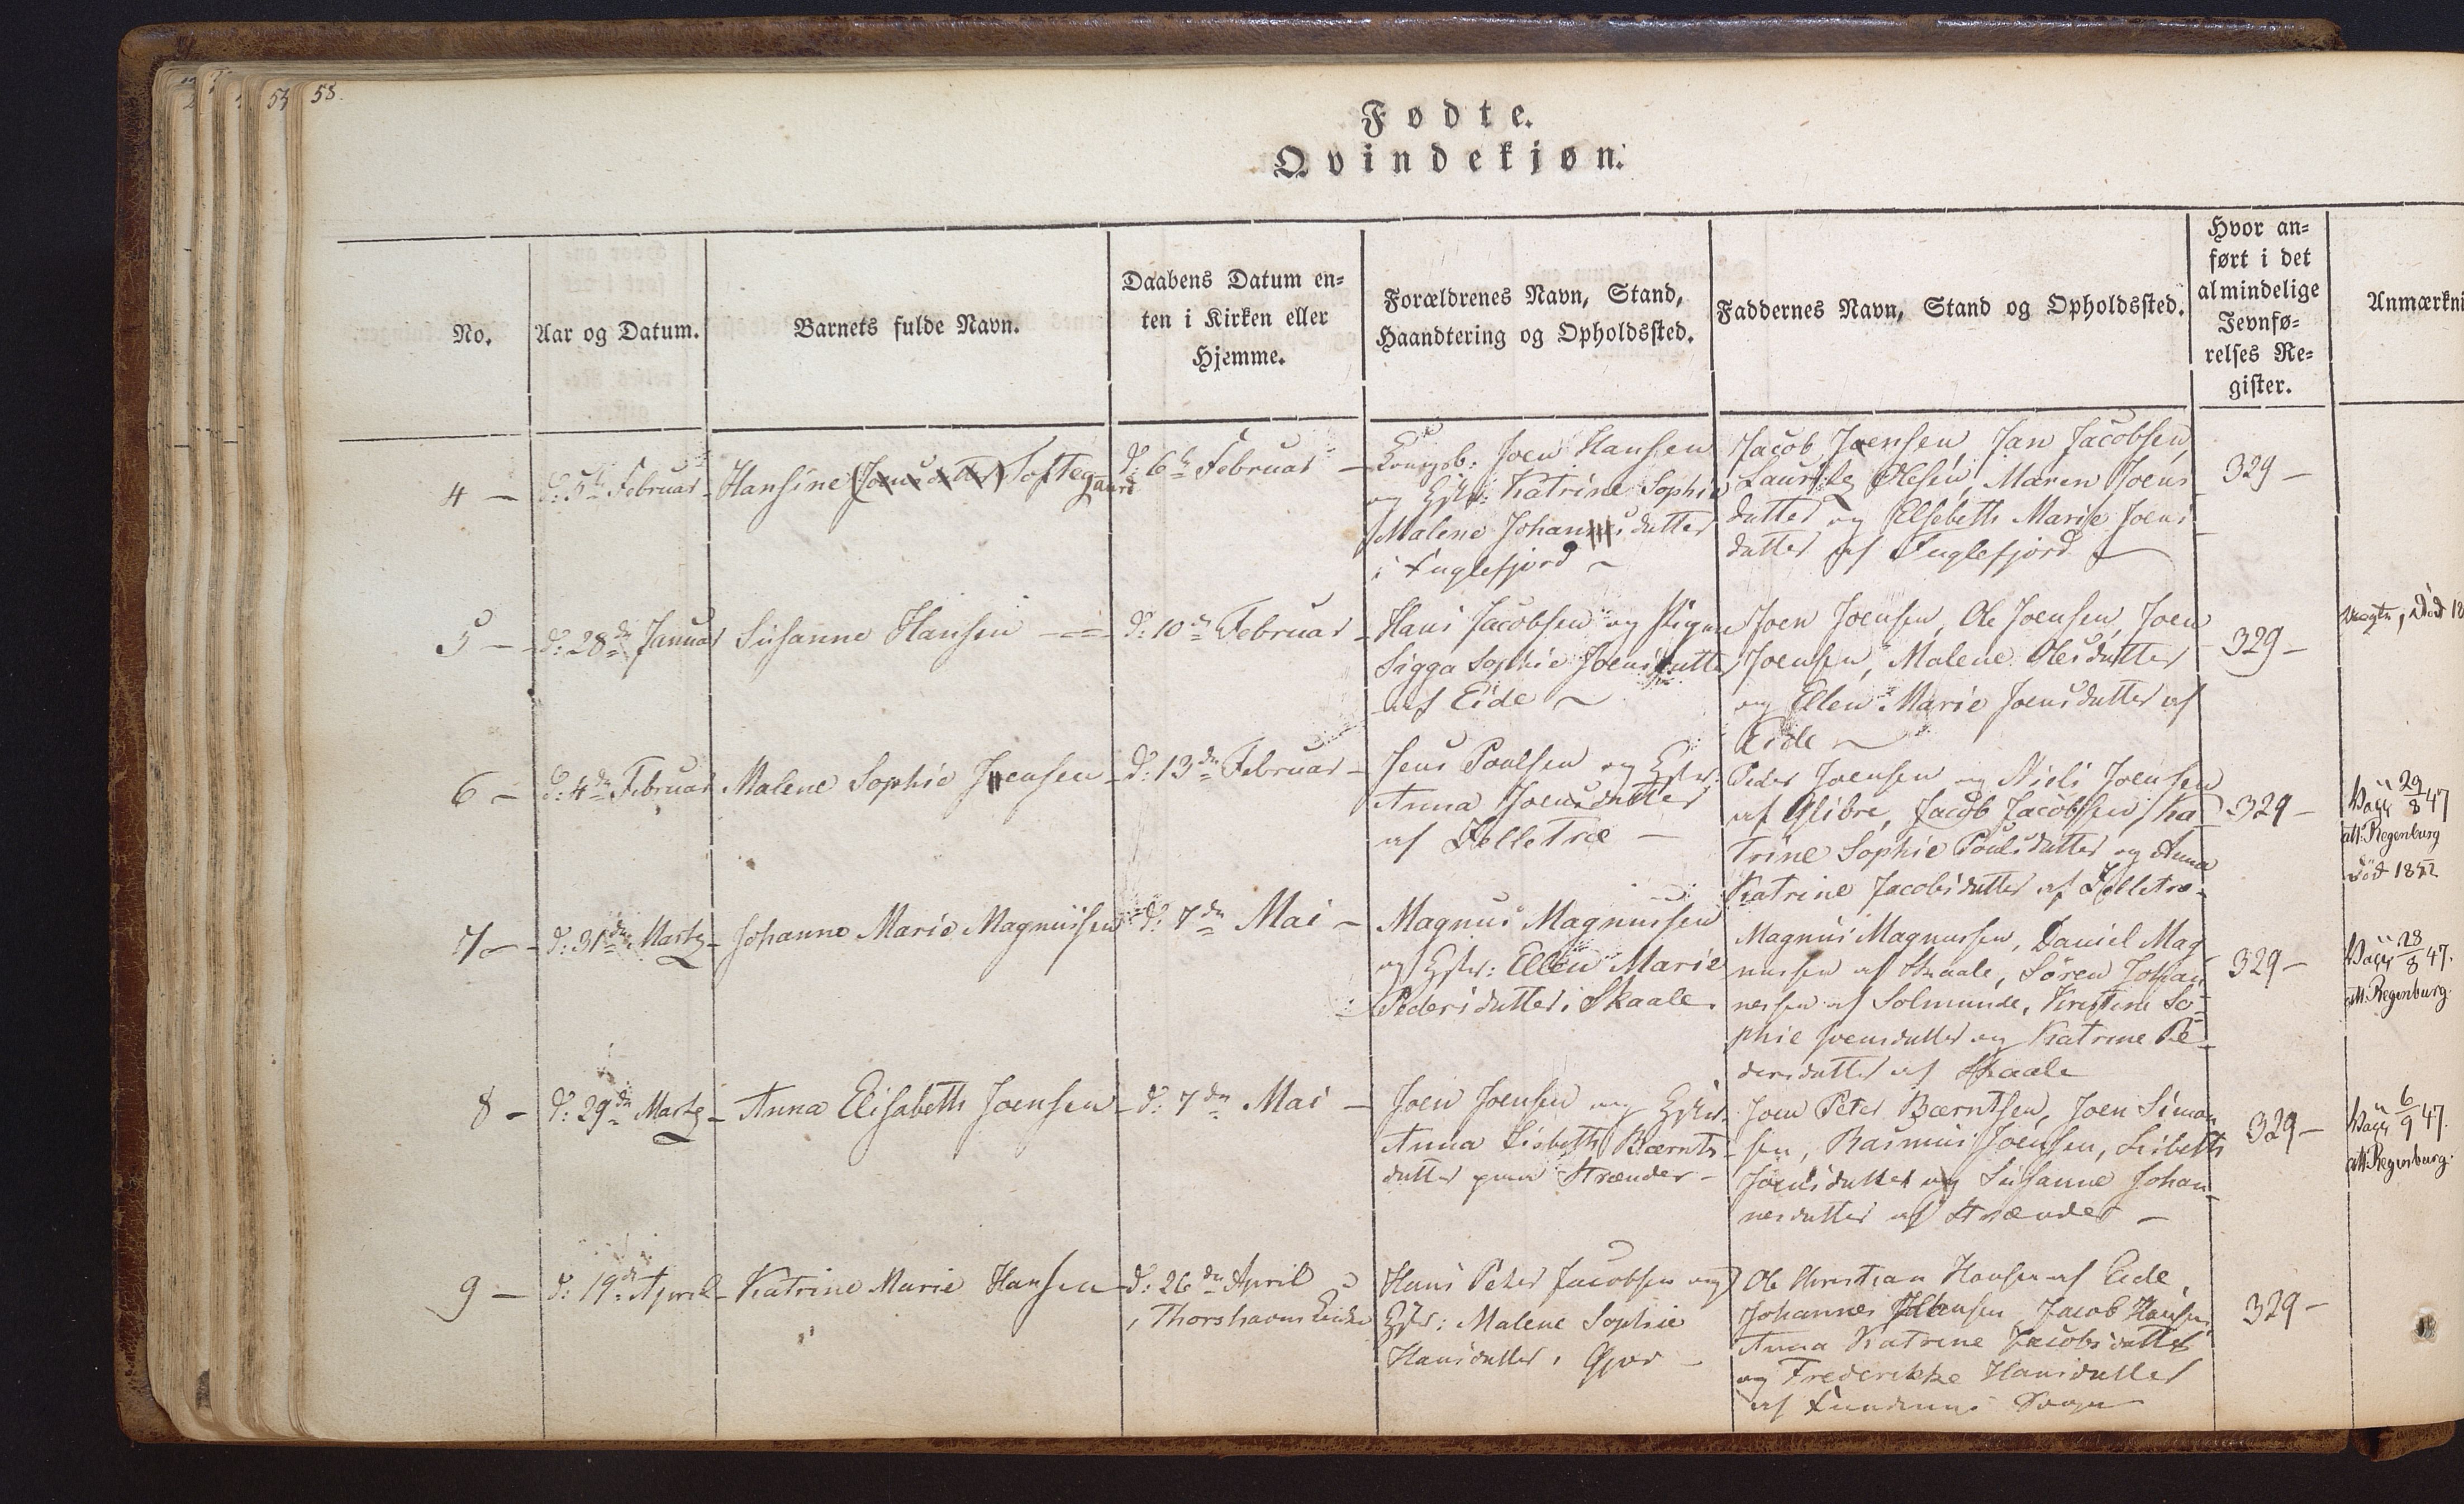 58.
Fødte.
Qvindekjøn.
No.
Aar og Datum.
Barnets fulde Navn.
Daabens Datum en=
ten i Kirken eller
Hjemme.
Forældrenes Navn, Stand,
Haandtering og Opholdssted.
Faddernes Navn, Stand og Opholdssted.
Hvor an=
ført i det
almindelige
Jevnfø=
relses Re=
gister.
Anmærkni
4 —
d: 5te Februar
Hansine Joensdatter Softegaard
d: 6te Februar
Kongsb: Joen Hansen
og Hstr: Katrine Sophie
Malene Johannesdatter
i Fuglefjord
Jacob Joensen, Jan Jacobsen,
Lauritz Olesen, Maren Joens
datter og Elsebeth Marie Joens
datter af Fuglefjord
329 —
5 —
d: 28de Januar
Susanne Hansen
d: 10de Februar
Hans Jacobsen og Pigen
Sigga Sophie Joensdatter
af Eide
Joen Joensen, Ole Joensen, Joen
Joensen, Malene Olesdatter
og Ellen Marie Joensdatter af
Eide
329 —
Død 18
6 —
d: 4de Februar
Malene Sophie Joensen
d: 13de Februar
Jens Poulsen og Hstr:
Anna Joensdatter
af Selletræ —
Peder Joensen og Niels Joensen
af Glibre, Jacob Jacobsen, Ka
trine Sophie Poulsdatter og Anna
Katrine Jacobsdatter af Selletræ.
329 —
Vacc 29/8 47
att: Regenburg
Død 1852
7 —
d: 31de Martz
Johanne Marie Magnussen
d: 7de Mai —
Magnus Magnussen
og Hstr: Ellen Marie
Pedersdatter i Skaale.
Magnus Magnussen, Daniel Mag
nussen af Skaale, Søren Johan
nessen af Solmunde, Kirstine So=
phie Joensdatter og Katrine Pe=
dersdatter af Skaale
329 —
Vacc 28/8 47.
att: Regenburg.
8 —
d: 29de Martz
Anna Elisabeth Joensen
d: 7de Mai —
Joen Joensen og Hstr:
Anna Lisbeth Bærnts
datter paa Strænder —
Joen Peter Bærntsen, Joen Simon
sen, Rasmus Joensen, Lisbeth
Joensdatter og Susanne Johan
nesdatter af Strænder —
329 —
Vacc 6/9 47.
att: Regenburg.
9 —
d: 19de April
Katrine Marie Hansen
d: 26de April
i Thorshavns Kirke
Hans Peter Jacobsen og
Hstr: Malene Sophie
Hansdatter i Gjov —
Ole Christian Hansen af Eide,
Johannes Joensen, Jacob Hansen
Anna Katrine Jacobsdatter
og Frederikke Hansdatter
af
329 —